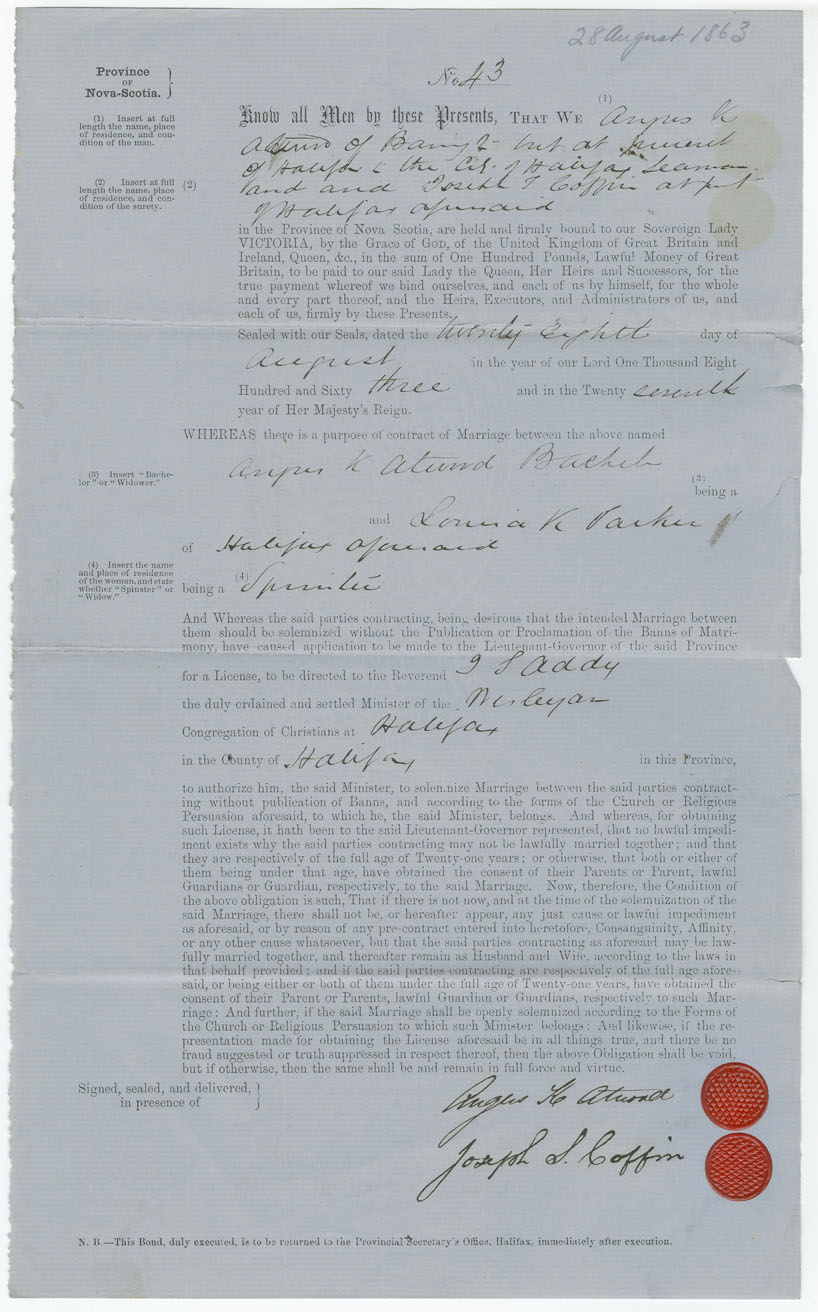 28 August 1863
Province
OF
Nova-Scotia.
No. 43
(1) Insert at full
length the name, place
of residence, and con-
dition of the man.
(2) Insert at full
length the name, place
of residence, and con-
dition of the surety.
Know all Men by these Presents, THAT WE (1) Angus K
Atwood of but at present
of Halifax the of Halifax Seaman
(2) and Joseph S Coffin at
of Halifax aforesaid
in the Province of Nova Scotia, are held and firmly bound to our Sovereign Lady
VICTORIA, by the Grace of GOD, of the United Kingdom of Great Britain and
Ireland, Queen, &c., in the sum of One Hundred Pounds, Lawful Money of Great
Britain, to be paid to our said Lady the Queen, Her Heirs and Successors, for the
true payment whereof we bind ourselves, and each of us by himself, for the whole
and every part thereof, and the Heirs, Executors, and Administrators of us, and
each of us, firmly by these Presents.
Sealed with our Seals, dated the twenty Eighth day of
August in the year of our Lord One Thousand Eight
Hundred and Sixty three and in the Twenty seventh
year of Her Majesty's Reign.
WHEREAS there is a purpose of contract of Marriage between the above named
Angus K Atwood Bachelor
(3) Insert "Bache-
lor" or "Widower."
(3)
being a
and Louisa K Parker
of Halifax aforesaid
(4) Insert the name
and place of residence
of the woman, and state
whether "Spinster" or
"Widow."
being a (4) Spinster
And Whereas the said parties contracting, being desirous that the intended Marriage between
them should be solemnized without the Publication or Proclamation of the Banns of Matri-
mony, have caused application to be made to the Lieutenant-Governor of the said Province
for a License, to be directed to the Reverend J S Addy
the duly ordained and settled Minister of the Wesleyan
Congregation of Christians at Halifax
in the County of Halifax in this Province,
to authorize him, the said Minister, to solemnize Marriage between the said parties contract-
ing without publication of Banns, and according to the forms of the Church or Religious
Persuasion aforesaid, to which he, the said Minister, belongs. And whereas, for obtaining
such License, it hath been to the said Lieutenant-Governor represented, that no lawful impedi-
ment exists why the said parties contracting may not be lawfully married together; and that
they are respectively of the full age of Twenty-one years; or otherwise, that both or either of
them being under that age, have obtained the consent of their Parents or Parent, lawful
Guardians or Guardian, respectively, to the said Marriage. Now, therefore, the Condition of
the above obligation is such, That if there is not now, and at the time of the solemnization of the
said Marriage, there shall not be, or hereafter appear, any just cause or lawful impediment
as aforesaid, or by reason of any pre-contract entered into heretofore, Consanguinity, Affinity,
or any other cause whatsoever, but that the said parties contracting as aforesaid may be law-
fully married together, and thereafter remain as Husband and Wife, according to the laws in
that behalf provided; and if the said parties contracting are respectively of the full age afore-
said, or being either or both of them under the full age of Twenty-one years, have obtained the
consent of their Parent or Parents, lawful Guardian or Guardians, respectively to such Mar-
riage: And further, if the said Marriage shall be openly solemnized according to the Forms of
the Church or Religious Persuasion to which such Minister belongs: And likewise, if the re-
presentation made for obtaining the License aforesaid be in all things true, and there be no
fraud suggested or truth suppressed in respect thereof, then the above Obligation shall be void,
but if otherwise, then the same shall be and remain in full force and virtue.
Signed, sealed, and delivered,
in presence of
Angus K Atwood
Joseph S. Coffin
N. B.—This Bond, duly executed, is to be returned to the Provincial Secretary's Office, Halifax, immediately after execution.